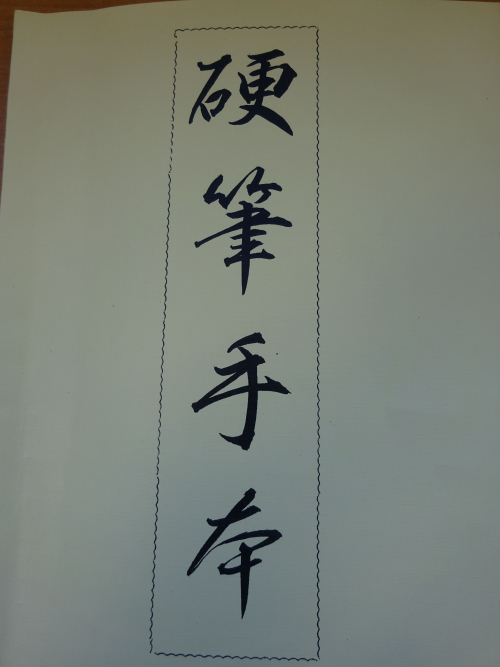 硬筆手本